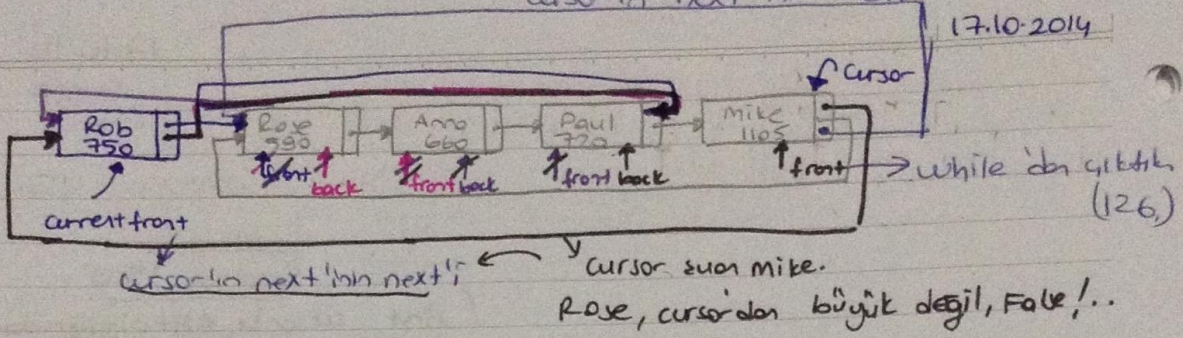 17.10.2014
Cursor
Rob
750
Rose
590
Anna
660
Paul
720
Mike
1105
front
back
front back
front back
front
while'dan çıktık
(126)
current front
cursor'ın next'inin next'i
Cursor şuan mike.
Rose, cursordan büyük değil, False!..